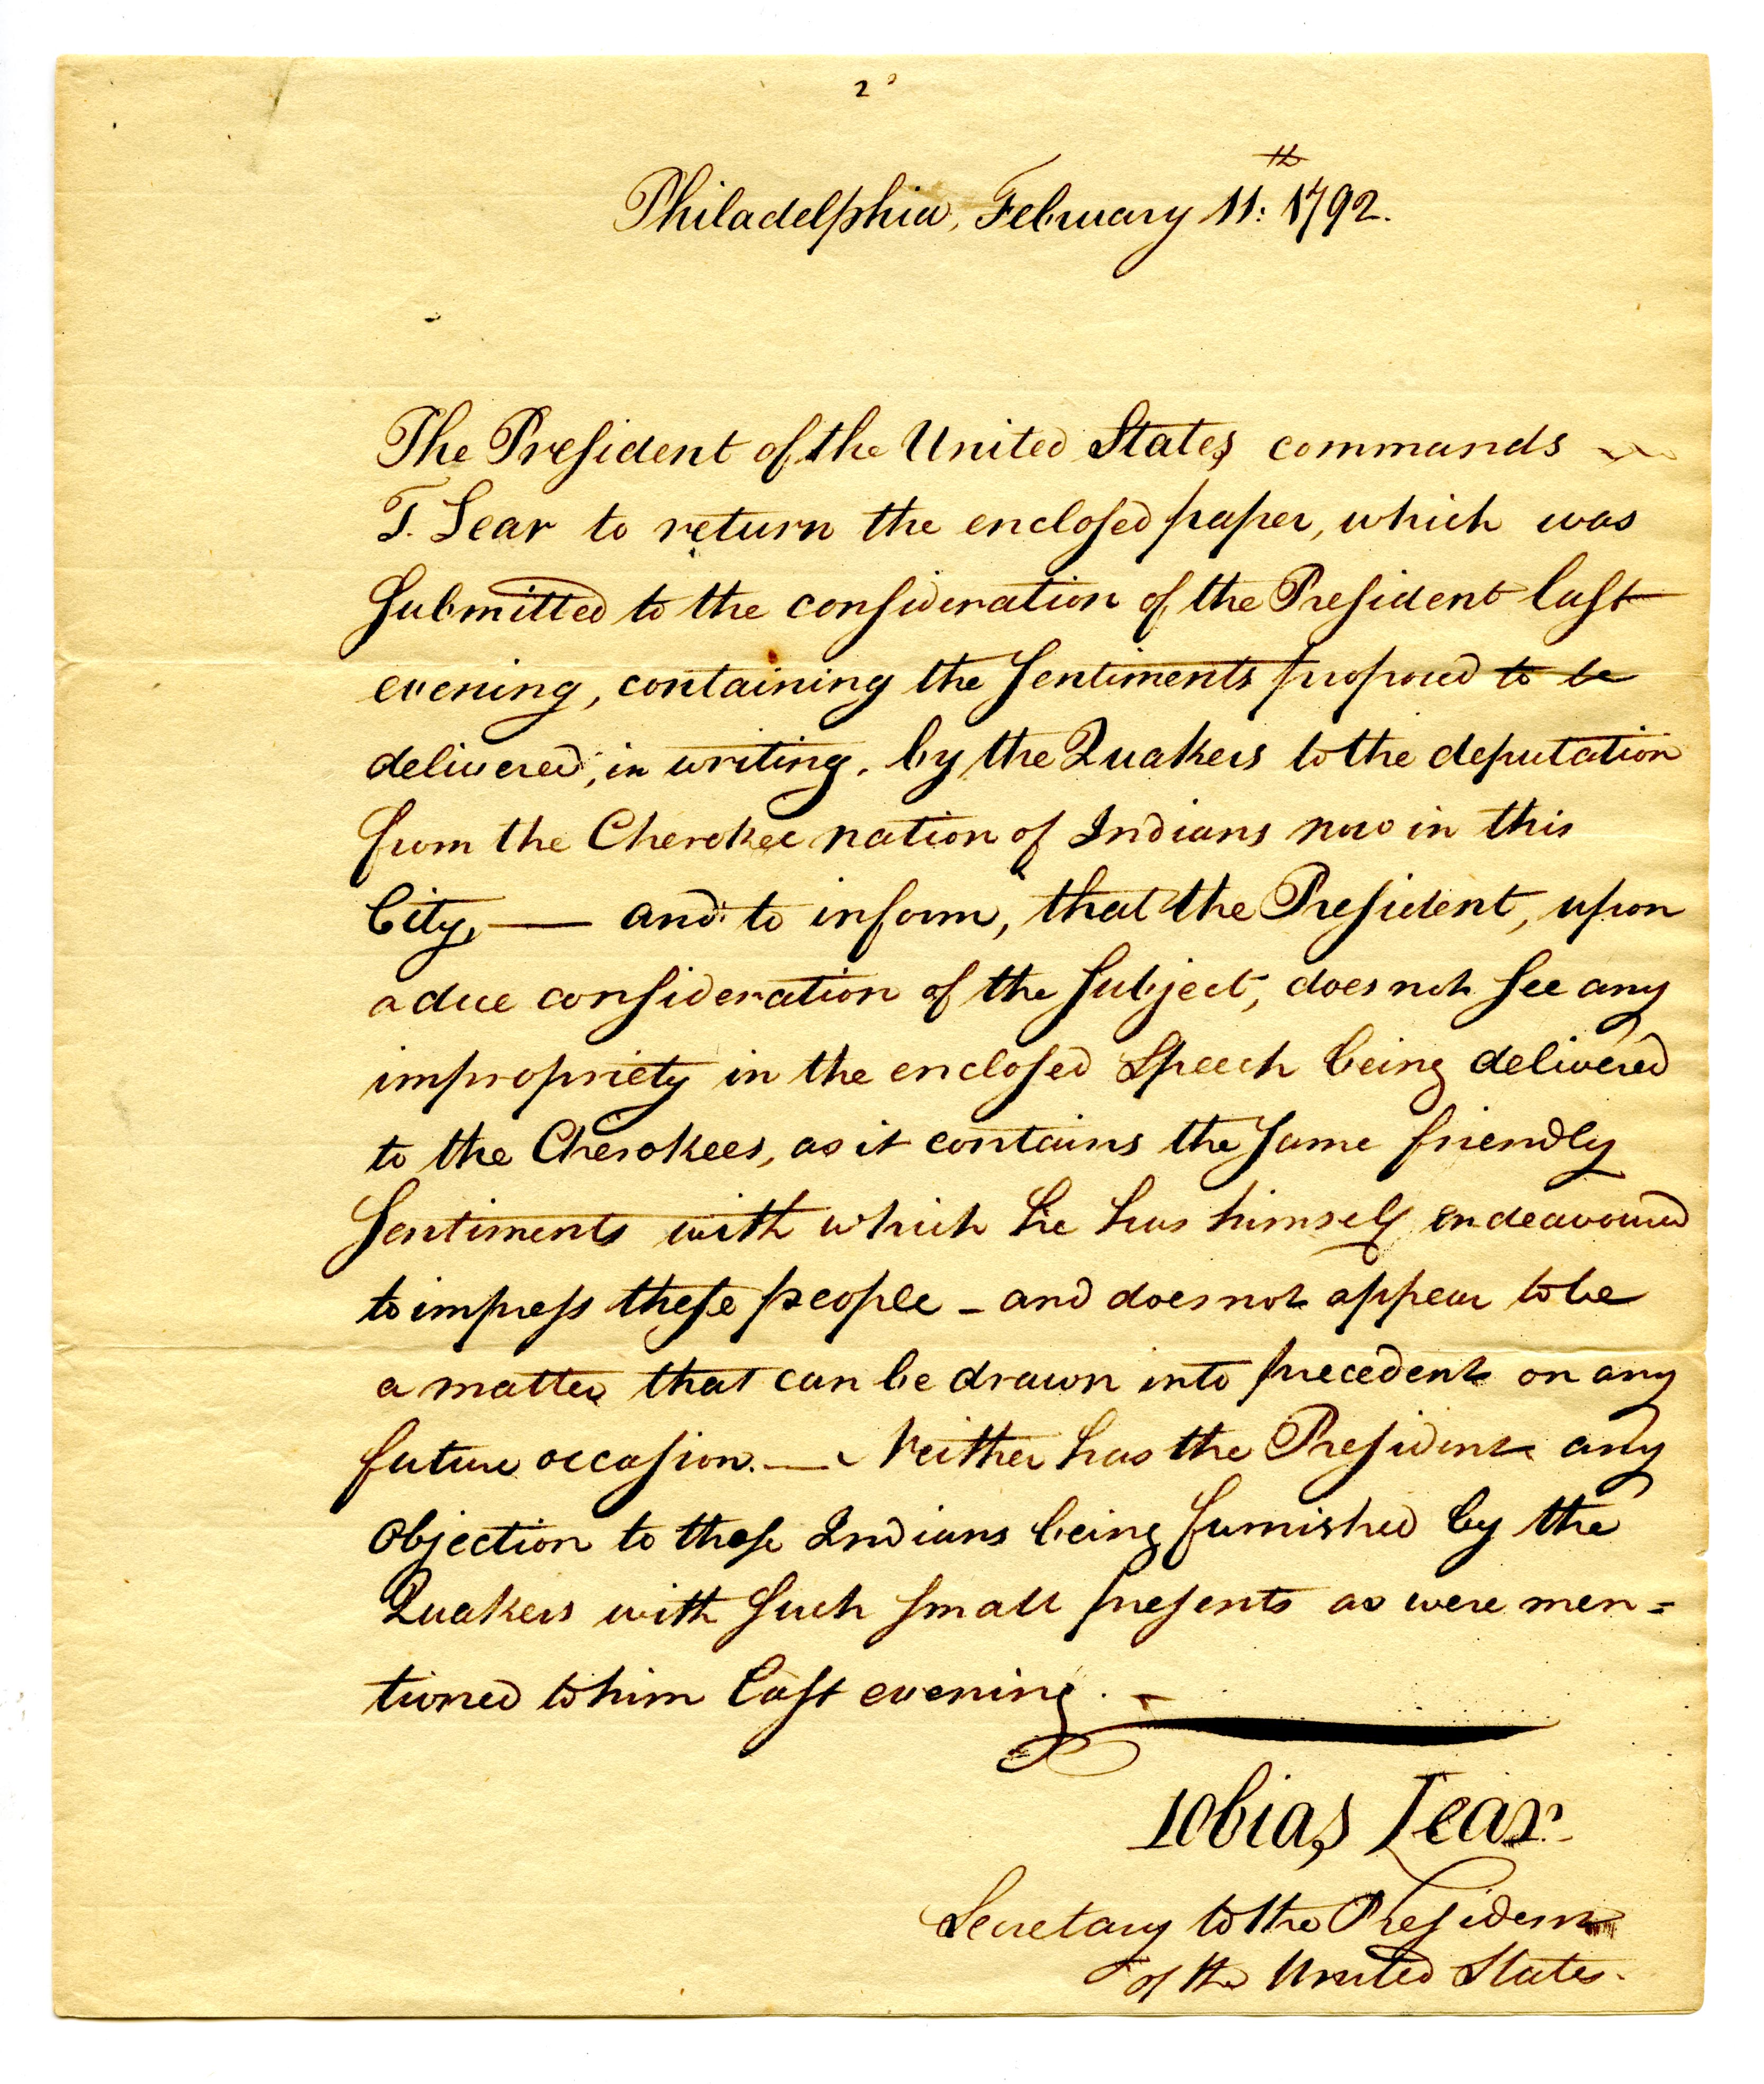 2
Philadelphia, February 11th: 1792.
The President of the United States commands
T. Lear to return the enclosed paper, which was
submitted to the consideration of the President last
evening, containing the Sentiments proposed to be
delivered, in writing, by the Quakers to the deputation
from the Cherokee nation of Indians now in this
City, — and to inform, that the President, upon
a due consideration of the subject, does not see any
impropriety in the enclosed Speech being delivered
to the Cherokees, as it contains the same friendly
Sentiments with which he has himself endeavoured
to impress these people – and does not appear to be
a matter that can be drawn into precedent on any
future occasion. — Neither has the President any
Objection to those Indians being furnished by the
Quakers with such small presents as were men=
tioned to him last evening. –
Tobias Lear.
Secretary to the President
of the United States.